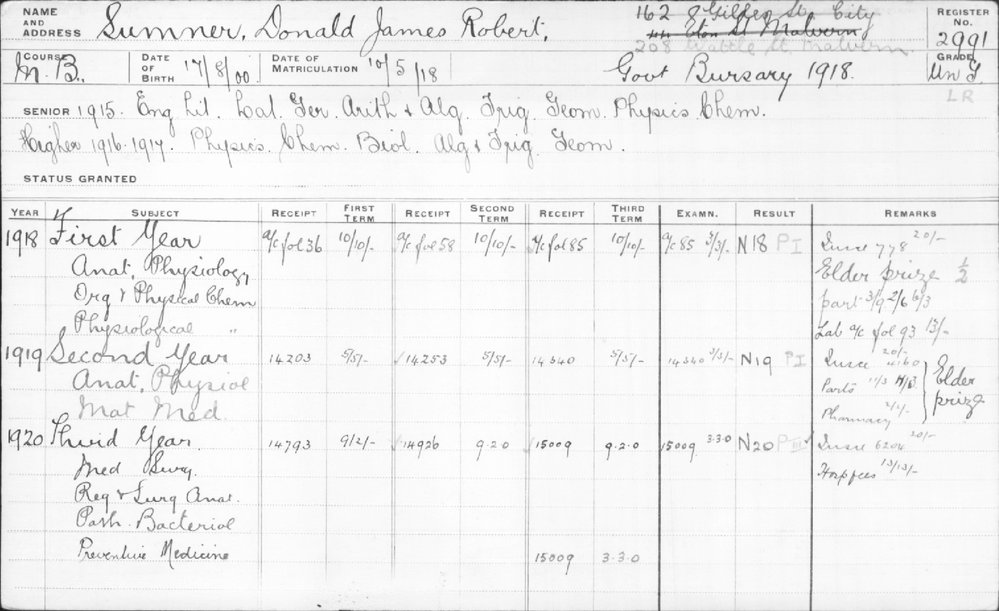 NAME AND ADDRESS Sumner, Donald James Robert. 162 Gilles St. City
44 Eton St Malvern
208 Wattle St. Malvern.
REGISTER No. 2991
COURSE M.B. DATE OF BIRTH 17/8/00 DATE OF MATRICULATION 10/5/18 Govt Bursary 1918. GRADE Un G.
LR
SENIOR 1915. Eng Lit. Lat. Ger. Arith & Alg. Trig. Geom. Physics Chem.
Higher 1916-1917. Physics. Chem. Biol. Alg & Trig. Geom.
STATUS GRANTED
YEAR SUBJECT RECEIPT FIRST TERM RECEIPT SECOND TERM RECEIPT THIRD TERM EXAMN. RESULT REMARKS
1918 First Year a/c fol 36 10/10/- a/c fol 58 10/10/- a/c fol 85 10/10/- a/c 85 3/3/- N18 PI 778 20/-
Anat, Physiology Elder prize 1/2
Org & Physical Chem part 3/9 2/6 6/3
Physiological " Lab a/c fol 93 13/-
1919 Second Year 14203 5/5/- 14253 5/5/- 14340 5/5/- 14340 3/3/- N19 PI 4160 20/-
Anat, Physiol Parts 11/3 Elder
Mat Med. Pharmacy 2/2/- prize
1920 Third Year 14793 9/2/- 14926 9.2.0 15009 9.2.0 15009 3.3.0 N20 PIII 6204 20/-
Med Surg. Hosp fees 13/13/-
Reg & Surg Anat.
Path. Bacteriol
Preventive Medicine 15009 3.3.0